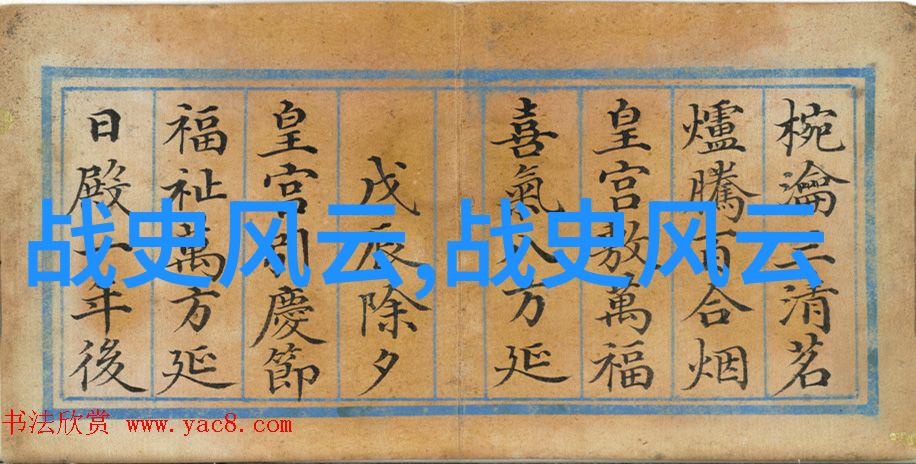 椀瀹三清茗
爐騰百合烟
皇宮敷萬福
喜氣八方延
戊辰除夕
皇宮引慶節
福祉萬方延
日殿一年後
战史风云,战史风云
书法欣赏 www.yac8.com